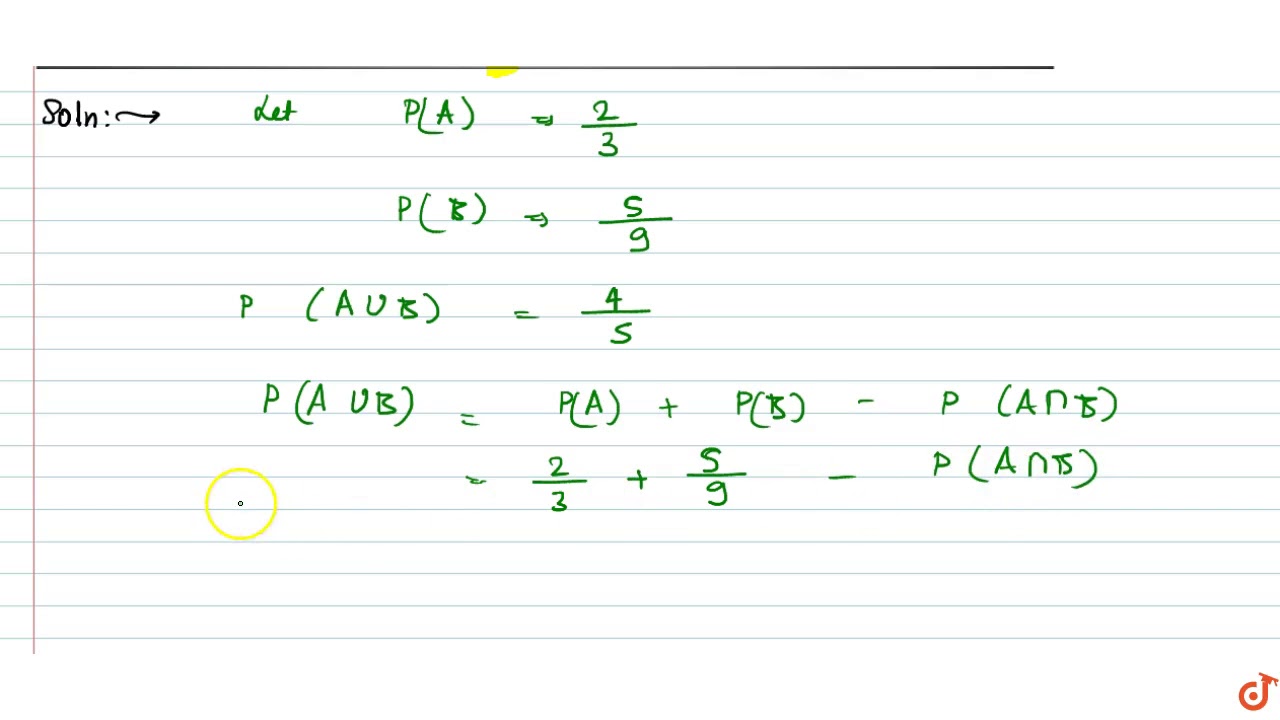 Soln:→ Let P(A) ⇒ 2/3
P(B) ⇒ 5/9
P (A∪B) = 4/5
P(A∪B) = P(A) + P(B) - P (A∩B)
= 2/3 + 5/9 - P(A∩B)